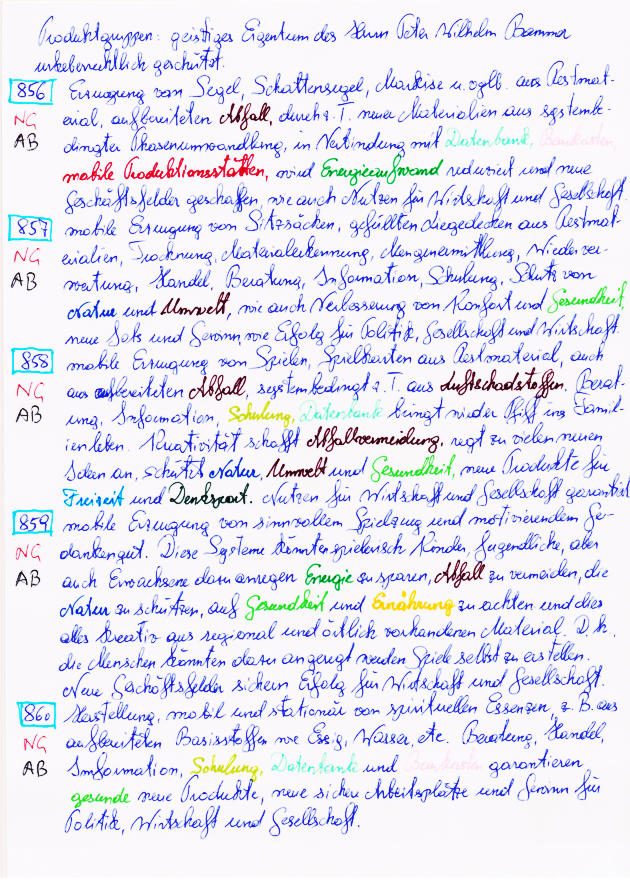 Produktgruppen: geistiges Eigentum des Herrn Peter Wilhelm Bammer
urheberrechtlich geschützt.
856 Erzeugung von Segel, Schattensegel, Markise u. vglb. aus Restmat-
NG erial, aufbereiteten Abfall, durch z. T. neue Materialien aus systembe-
AB dingter Phasenumwandlung, in Verbindung mit Datenbank, Baukasten,
mobile Produktionsstätten, wird Energieaufwand reduziert und neue
Geschäftsfelder geschaffen, wie auch Nutzen für Wirtschaft und Gesellschaft.
857 mobile Erzeugung von Sitzsäcken, gefüllten Liegedecken aus Restmat-
NG erialien, Trocknung, Materialerkennung, Mengenermittlung, Wiederver-
AB wertung, Handel, Beratung, Information, Schulung, Schutz von
Natur und Umwelt, wie auch Verbesserung von Komfort und Gesundheit,
neue Jobs und Gewinn, wie Erfolg für Politik, Gesellschaft und Wirtschaft.
858 mobile Erzeugung von Spielen, Spielkarten aus Restmaterial, auch
NG aus aufbereiteten Abfall, systembedingt z. T. aus Luftschadstoffen. Berat-
AB ung, Information, Schulung, Datenbank bringt wieder Pfiff ins Famil-
ienleben. Kreativität schafft Abfallvermeidung, regt zu vielen neuen
Ideen an, schützt Natur, Umwelt und Gesundheit, neue Produkte für
Freizeit und Denksport. Nutzen für Wirtschaft und Gesellschaft garantiert
859 mobile Erzeugung von sinnvollem Spielzeug und motivierendem Ge-
NG dankengut. Diese Systeme könnten spielerisch Kinder, Jugendliche, aber
AB auch Erwachsene dazu anregen Energie zu sparen, Abfall zu vermeiden, die
Natur zu schützen, auf Gesundheit und Ernährung zu achten und dies
alles kreativ aus regional und örtlich vorhandenen Material. D. h.
die Menschen könnten dazu angeregt werden Spiele selbst zu erstellen.
Neue Geschäftsfelder sichern Erfolg für Wirtschaft und Gesellschaft.
860 Herstellung, mobil und stationär von spirituellen Essenzen, z. B. aus
NG aufbereiteten Basisstoffen wie Essig, Wasser, etc. Beratung, Handel,
AB Information, Schulung, Datenbank und Baukasten garantieren
gesunde neue Produkte, neue sichere Arbeitsplätze und Gewinn für
Politik, Wirtschaft und Gesellschaft.